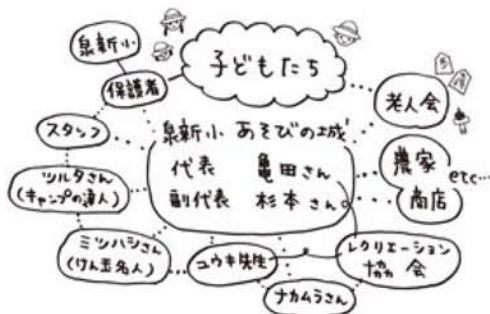 泉新小
保護者
子どもたち
老人会
スタッフ
泉新小 あそびの城
代表 亀田さん
副代表 杉本さん
農家
etc…
商店
ツルタさん
(キャンプの達人)
ミツハシさん
(けん玉名人)
ユウキ先生
レクリエーション
協会
ナカムラさん